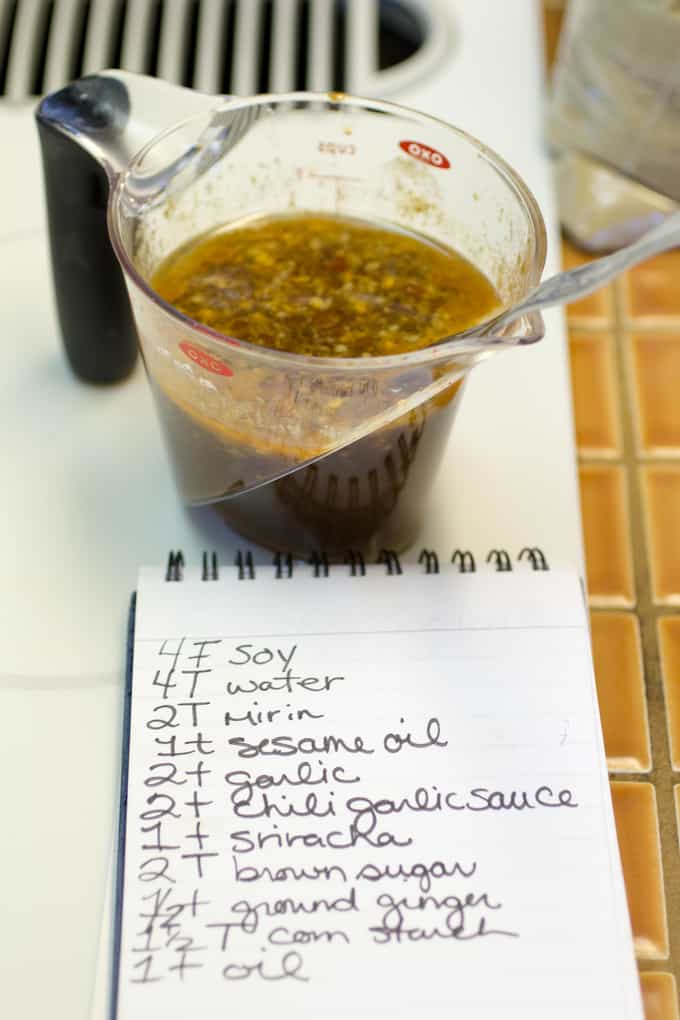 CUPS
OXO
OXO
4T soy
4T water
2T Mirin
1t sesame oil
2t garlic
2t chili garlic sauce
1t sriracha
2T brown sugar
1/2t ground ginger
1 1/2 T corn starch
1T oil